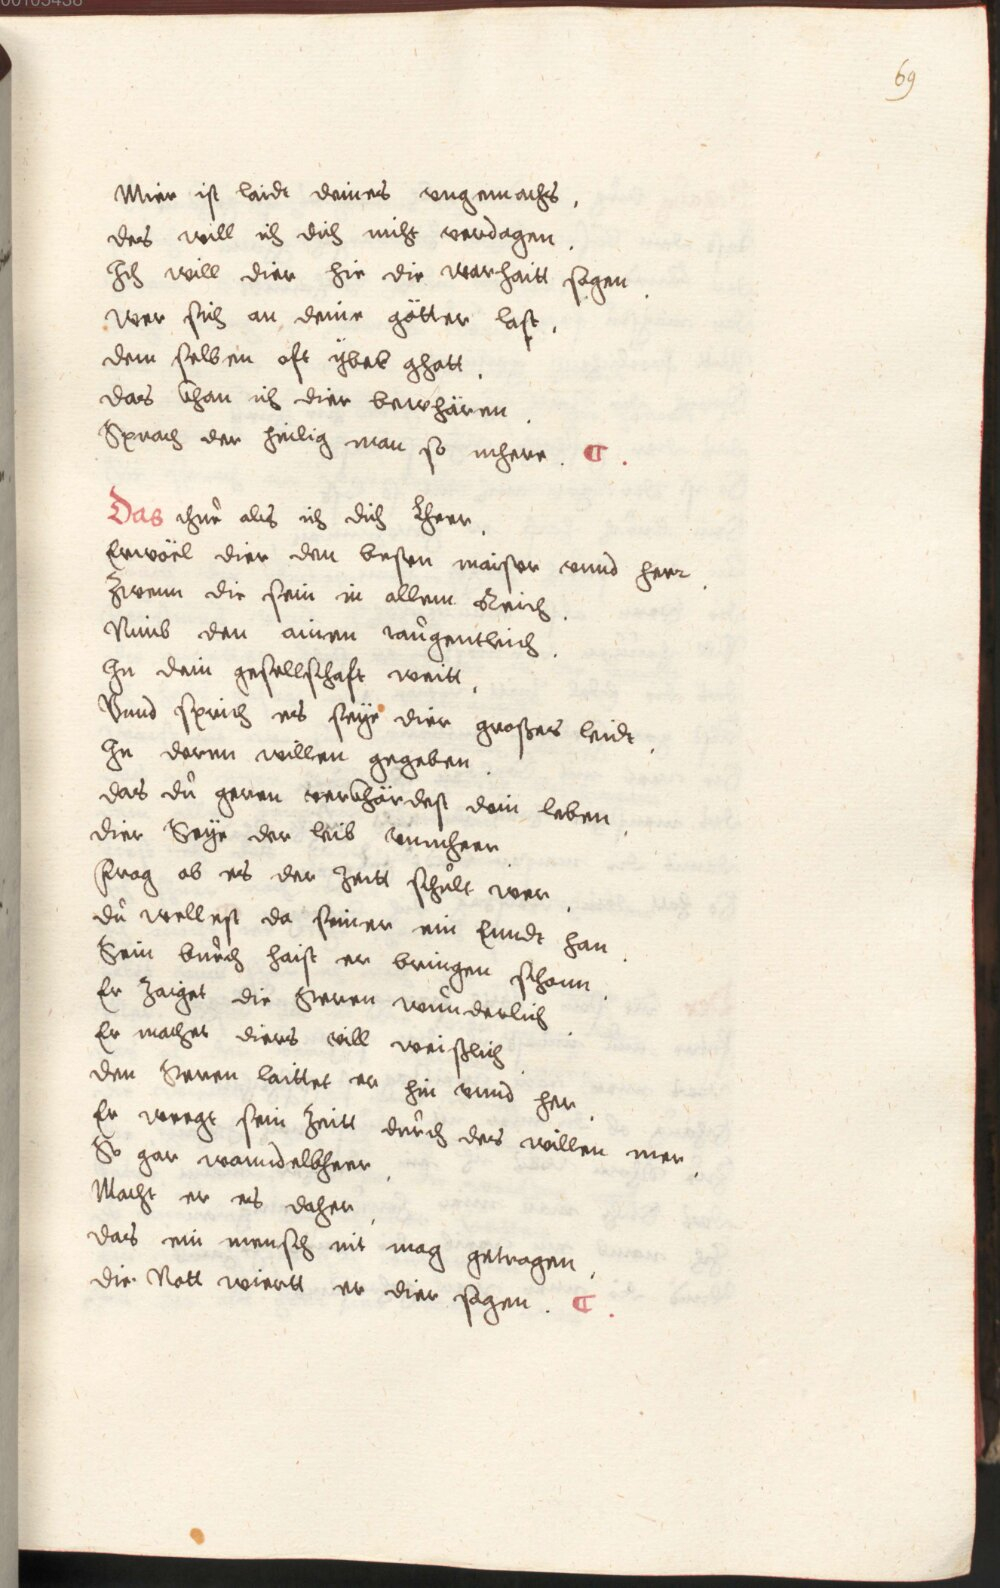 00105438
69
Mier ist laidt deines vngemachs,
des will ich dich nicht verdagen.
Ich will dier hie die warhaitt sagen.
wer sich an deine götter last,
dem selben oft ÿbel ghatt.
das khan ich dier bewhären.
Sprach der heilig man so mhere.
Das thue als ich dich Lheer.
Erwöel dier den besten maister vnnd herr.
Zwenn die sein in allem Reich.
Nimb den ainen taugentleich.
In dein gesellschaft weitt,
Vnnd sprich es seÿe dier großes leidt,
In deren willen gegeben.
das du geren verkhärdest dein leben.
dier Seÿe der leib vnmheer.
Frag ob es der Zeitt schult wer.
du wellest da seiner ein Enndt han.
Sein buech haist er bringen schonn.
Er Zaiget die Steren wunderlich.
Er machet diers vill weißlich.
den Steren laittet er hin vnnd her.
Er wegt sein Zeitt durch des willen mer.
So gar wanndelbheer.
Macht er es daher,
das ein mensch nit mag getragen.
die Nott wiertt er dier sagen.